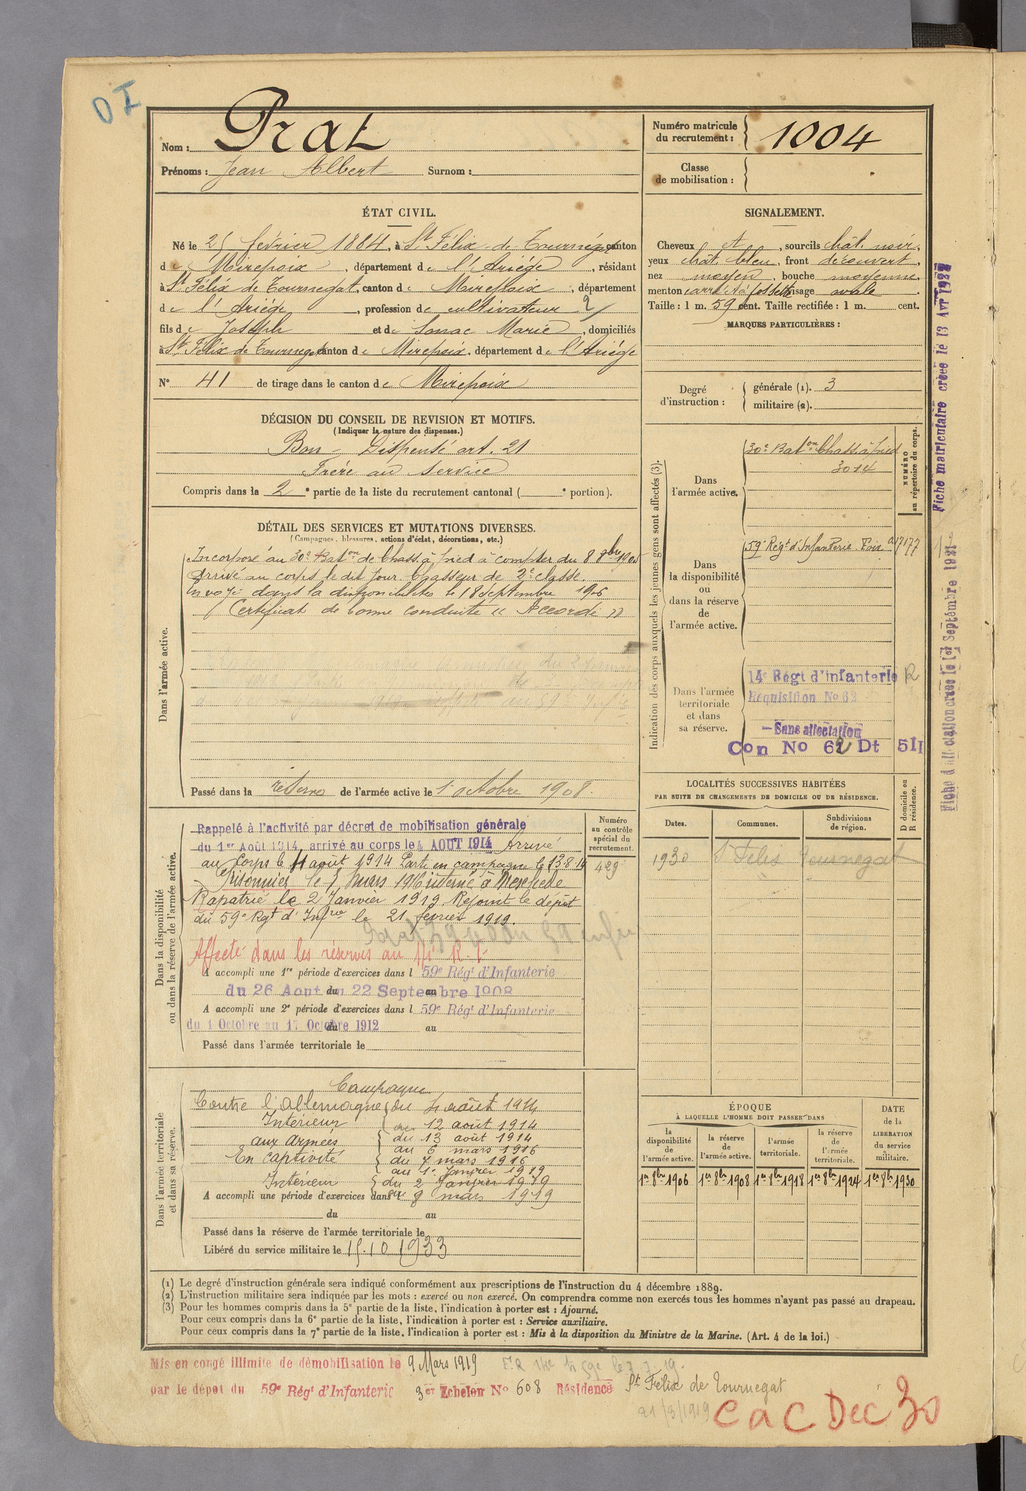 D I
Nom : Prat
Prénoms : Jean Albert Surnom :
Numéro matricule du recrutement : 1004
Classe de mobilisation :
ÉTAT CIVIL.
Né le 25 février 1884, à St Félix de Tournégat, canton
de Mirepoix, département de l'Ariège, résidant
à St Félix de Tournegat, canton de Mirepoix, département
de l'Ariège, profession de cultivateur
fils de Joseph et de Marie, domiciliés
à St Félix de Tournegat, canton de Mirepoix, département de l'Ariège
N° 41 de tirage dans le canton de Mirepoix
SIGNALEMENT.
Cheveux , sourcils chât. noir.
yeux chât. bleu, front découvert,
nez moyen, bouche moyenne
menton carré à fossette visage ovale.
Taille : 1 m. 59 cent. Taille rectifiée : 1 m. cent.
MARQUES PARTICULIÈRES :
Degré d'instruction : générale (1). 3
militaire (2).
DÉCISION DU CONSEIL DE REVISION ET MOTIFS.
(Indiquer la nature des dispenses.)
Bon - Dispensé art. 21
Frère au service
Compris dans la 2e partie de la liste du recrutement cantonal ( e portion).
DÉTAIL DES SERVICES ET MUTATIONS DIVERSES.
(Campagnes, blessures, actions d'éclat, décorations, etc.)
Dans l'armée active.
Incorporé au 30e Baton de Chass. à pied à compter du 8 8bre 1905
Arrivé au corps le dit jour. Chasseur de 2e classe.
Envoyé dans la disponibilité le 18 Septembre 1906
Certificat de bonne conduite « Accordé »
Passé dans la réserve de l'armée active le 1 octobre 1908.
Indication des corps auxquels les jeunes gens sont affectés (3).
NUMÉRO au répertoire du corps.
Dans l'armée active.
30e Baton Chass. à pied
3014
Dans la disponibilité ou dans la réserve de l'armée active.
59e Régt d'Infanterie Foix
Dans l'armée territoriale et dans sa réserve.
14e Régt d'infanterie R
Réquisition No 62
— Sans affectation
Con No 62 Dt 511
Fiche matriculaire créée le 13 Avr 1928
Fiche d'affectation créée le 1er Septembre 1931
Dans la disponibilité ou dans la réserve de l'armée active.
Numéro au contrôle spécial du recrutement.
Rappelé à l'activité par décret de mobilisation générale
du 1er Août 1914, arrivé au corps le 4 AOUT 1914 Arrivé
au Corps le 4 août 1914 Parti en campagne le 13 8 14
Prisonnier le 7 mars 1916 interné à Meschede
Rapatrié le 2 Janvier 1919 Rejoint le dépôt
du 59e Rgt d'Infrie le 21 février 1919.
Affecté dans les réserves au R. I.
A accompli une 1re période d'exercices dans l 59e Régt d'Infanterie
du 26 Aout au 22 Septembre 1908
A accompli une 2e période d'exercices dans l 59e Régt d'Infanterie
du 1 Octobre au 17 Octobre 1912
Passé dans l'armée territoriale le
LOCALITÉS SUCCESSIVES HABITÉES
PAR SUITE DE CHANGEMENTS DE DOMICILE OU DE RÉSIDENCE.
Dates. Communes. Subdivisions de région. D domicile ou R résidence.
1930 St Félix Tournegat
Dans l'armée territoriale et dans sa réserve.
Campagne
Contre l'allemagne du 4 août 1914
Intérieur au 12 août 1914
aux armées du 13 août 1914
au 6 mars 1916
En captivité du 7 mars 1916
au 1 janvier 1919
Intérieur du 2 janvier 1919
A accompli une période d'exercices dans au 8 mars 1919
du au
Passé dans la réserve de l'armée territoriale le
Libéré du service militaire le 15.10 1933
ÉPOQUE
À LAQUELLE L'HOMME DOIT PASSER DANS
la disponibilité de l'armée active. la réserve de l'armée active. l'armée territoriale. la réserve de l'armée territoriale.
DATE de la LIBÉRATION du service militaire.
1er 8bre 1906 1er 8bre 1908 1er 8bre 1918 1er 8bre 1924 1er 8bre 1930
(1) Le degré d'instruction générale sera indiqué conformément aux prescriptions de l'instruction du 4 décembre 1889.
(2) L'instruction militaire sera indiquée par les mots : exercé ou non exercé. On comprendra comme non exercés tous les hommes n'ayant pas passé au drapeau.
(3) Pour les hommes compris dans la 5e partie de la liste, l'indication à porter est : Ajourné.
Pour ceux compris dans la 6e partie de la liste, l'indication à porter est : Service auxiliaire.
Pour ceux compris dans la 7e partie de la liste, l'indication à porter est : Mis à la disposition du Ministre de la Marine. (Art. 4 de la loi.)
Mis en congé illimité de démobilisation le 9 Mars 1919
par le dépôt du 59e Régt d'Infanterie 3er Echelon No 608 Résidence St Félix de Tournegat
21/3/1919
CaC Déc 30